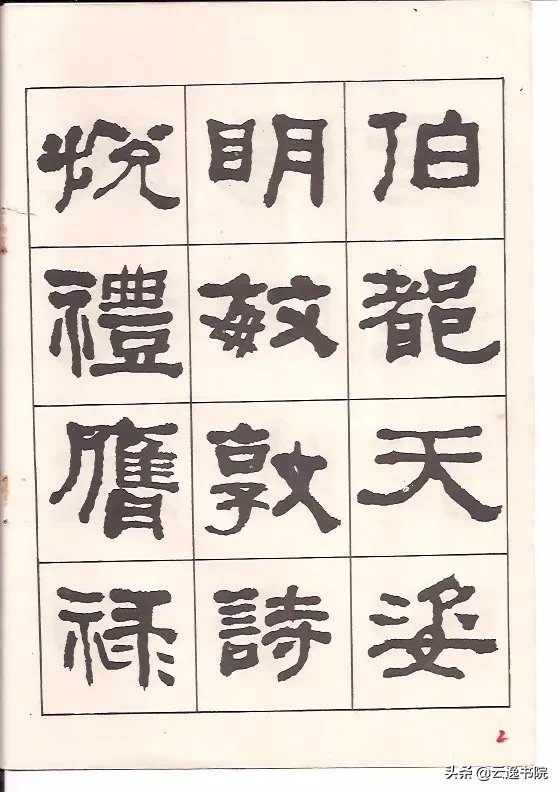 伯都天姿
明敏敦詩
悅禮膺祿
2
头条 @云逸书院